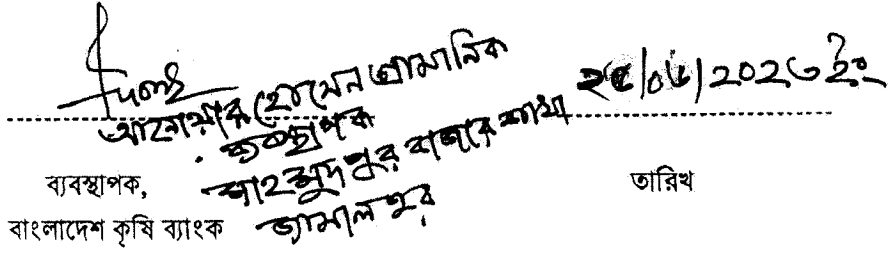 আনোয়ার হোসেন প্রামানিক
ব্যবস্থাপক
মাহমুদপুর বাজার শাখা
জামালপুর
ব্যবস্থাপক,
বাংলাদেশ কৃষি ব্যাংক
তারিখ